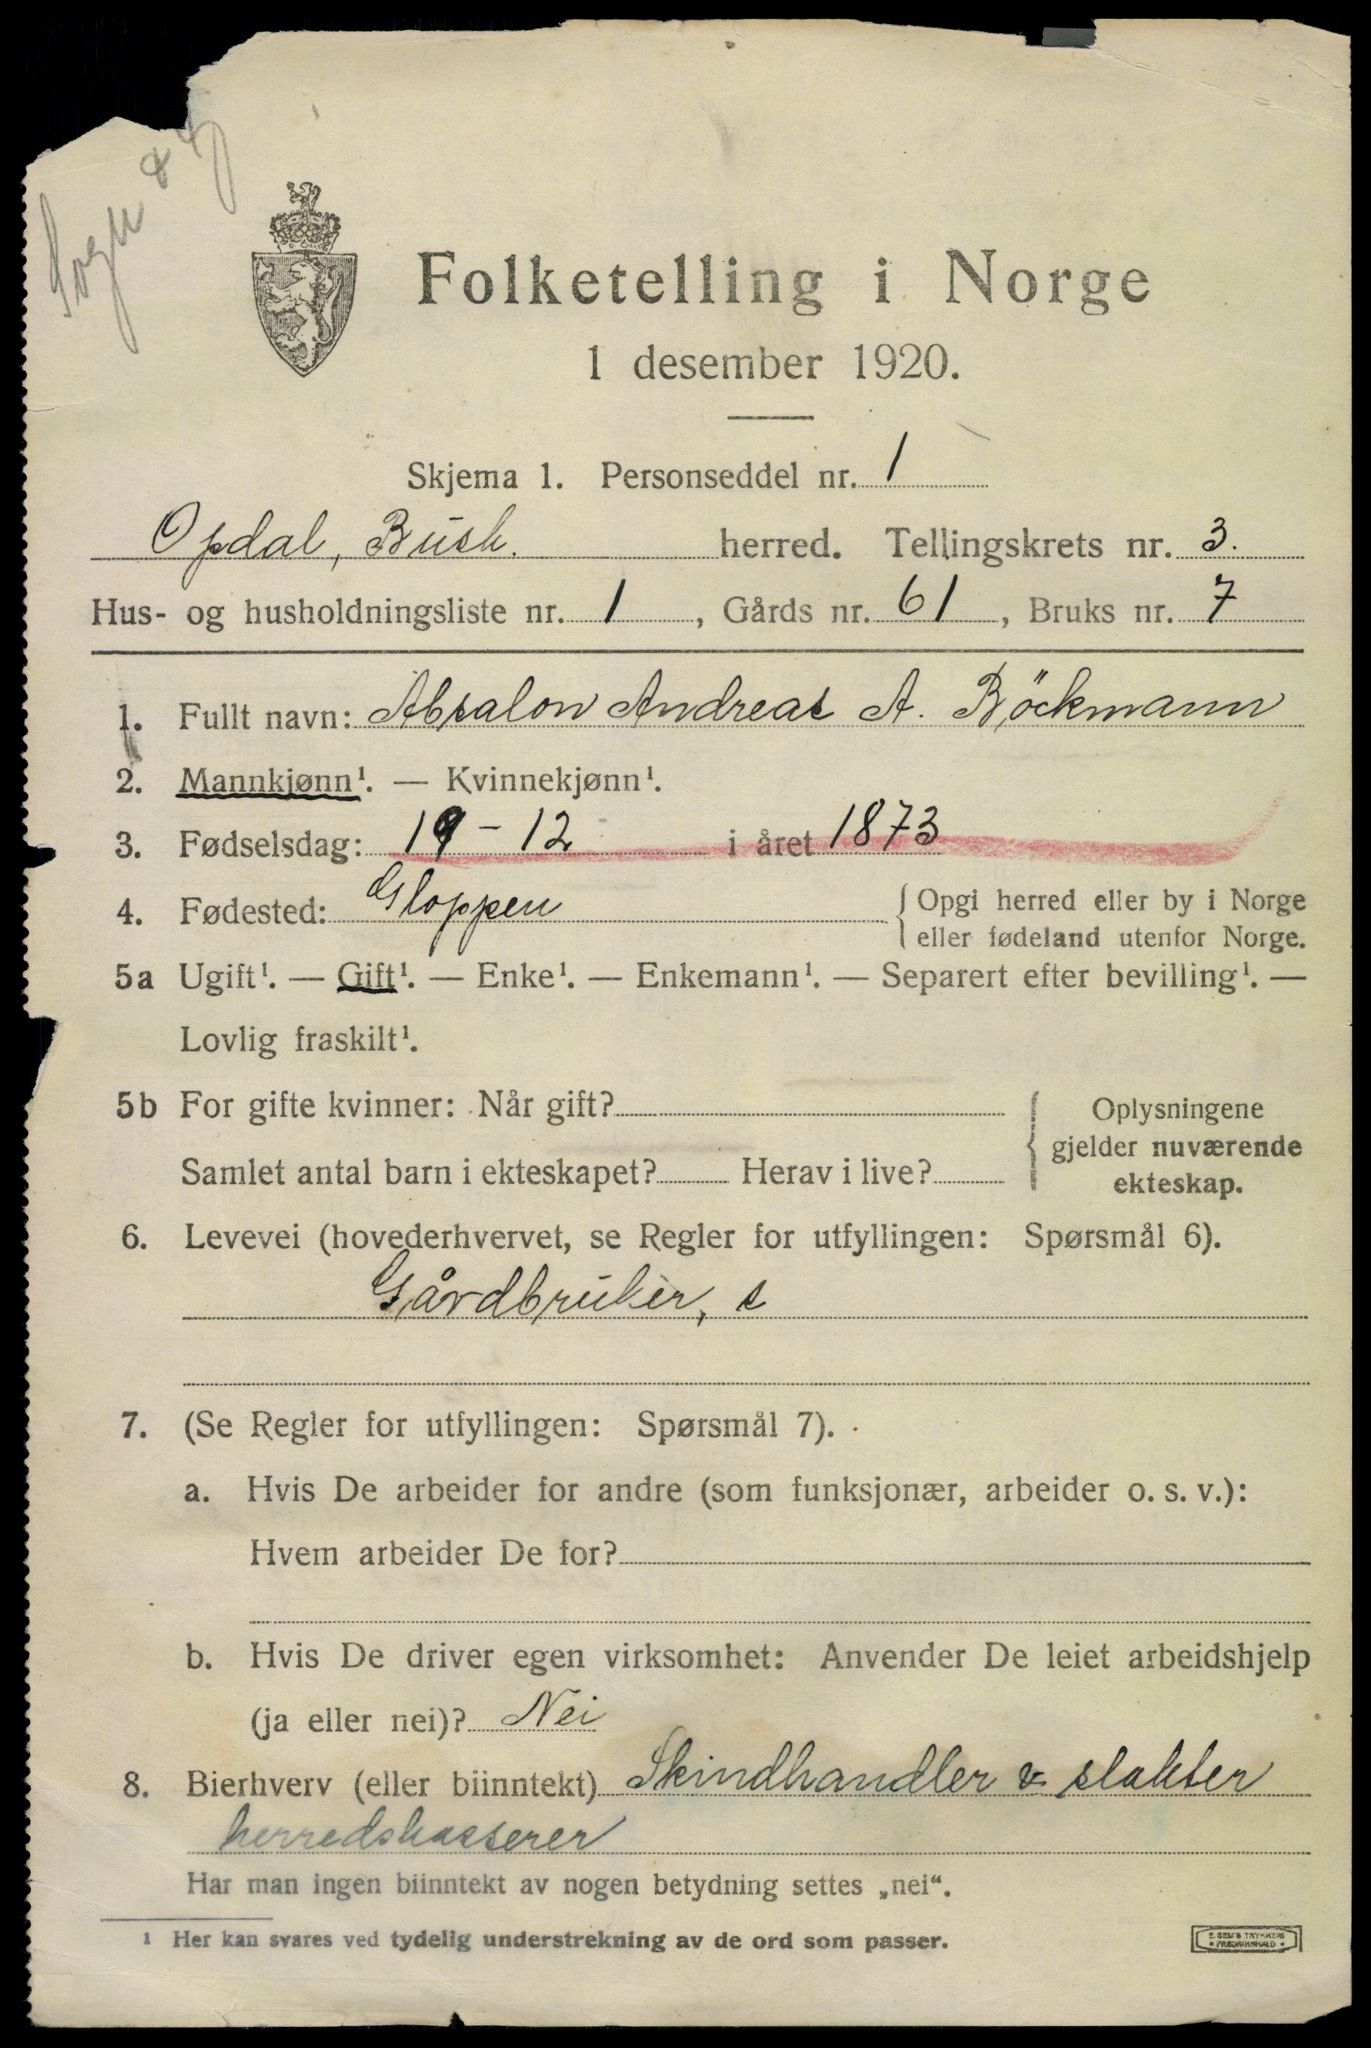 Sogn &
Folketelling i Norge
1 desember 1920.
Skjema 1. Personseddel nr. 1
Opdal, Busk. herred. Tellingskrets nr. 3.
Hus- og husholdningsliste nr. 1, Gårds nr. 61, Bruks nr. 7
1. Fullt navn: Absalon Andreas A. Böckmann
2. Mannkjønn¹. — Kvinnekjønn¹.
3. Fødselsdag: 19 - 12 i året 1873
4. Fødested: Gloppen { Opgi herred eller by i Norge
eller fødeland utenfor Norge.
5a Ugift¹. — Gift¹. — Enke¹. — Enkemann¹. — Separert efter bevilling¹. —
Lovlig fraskilt¹.
5b For gifte kvinner: Når gift?
Samlet antal barn i ekteskapet? Herav i live?
{ Oplysningene
gjelder nuværende
ekteskap.
6. Levevei (hovederhvervet, se Regler for utfyllingen: Spørsmål 6).
Gårdbruker, s
7. (Se Regler for utfyllingen: Spørsmål 7).
a. Hvis De arbeider for andre (som funksjonær, arbeider o. s. v.):
Hvem arbeider De for?
b. Hvis De driver egen virksomhet: Anvender De leiet arbeidshjelp
(ja eller nei)? Nei
8. Bierhverv (eller biinntekt) Skindhandler & slakter
herredskasserer
Har man ingen biinntekt av nogen betydning settes „nei“.
¹ Her kan svares ved tydelig understrekning av de ord som passer.
E. SEM'S TRYKKERI
• FREDRIKSHALD •